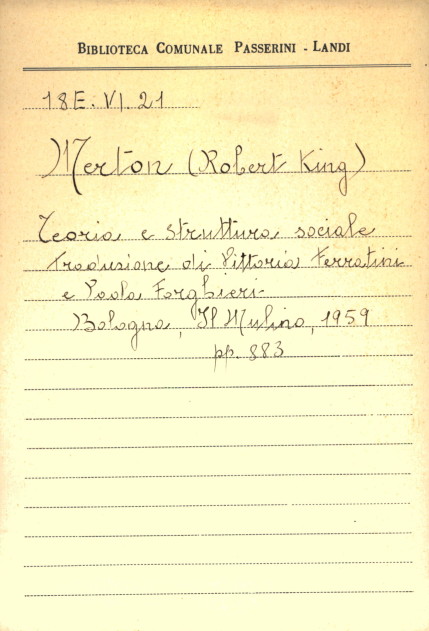 BIBLIOTECA COMUNALE PASSERINI - LANDI
18E. VI. 21
Merton (Robert King)
Teoria e struttura sociale
Traduzione di Vittoria Ferratini
e Paola Forghieri
Bologna, Il Mulino, 1959
pp. 883